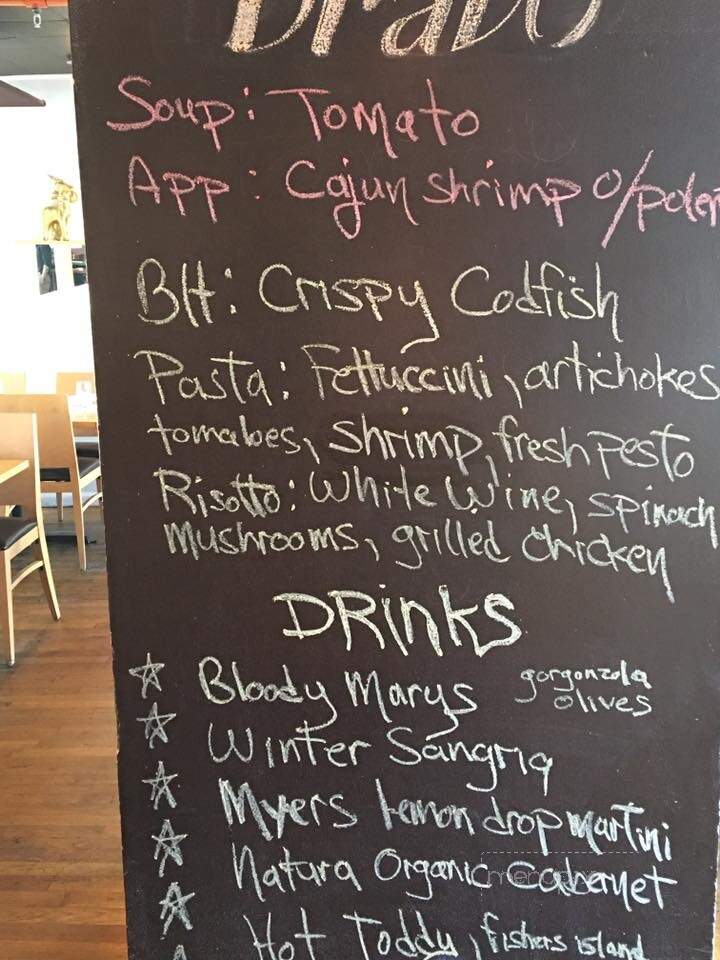 Soup: Tomato
App: Cajun shrimp o/polen
Blt: Crispy Codfish
Pasta: Fettuccini, artichokes
tomatoes, shrimp, fresh pesto
Risotto: White Wine, spinach
mushrooms, grilled chicken
DRinks
Bloody Marys gorgonzola
olives
Winter Sangria
Myers Lemon drop martini
Natura Organic Cabernet
Hot Toddy, fishers island